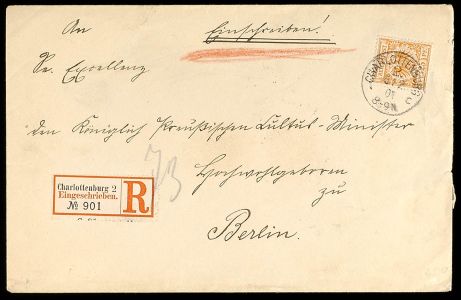 An Einschreiben!
Sr. Excellenz
den Königlich Preußischen Cultus-Minister
Hochwohlgeboren
zu
Berlin.
CHARLOTTENBURG
8-9N
Charlottenburg 2
Eingeschrieben.
№ 901
R